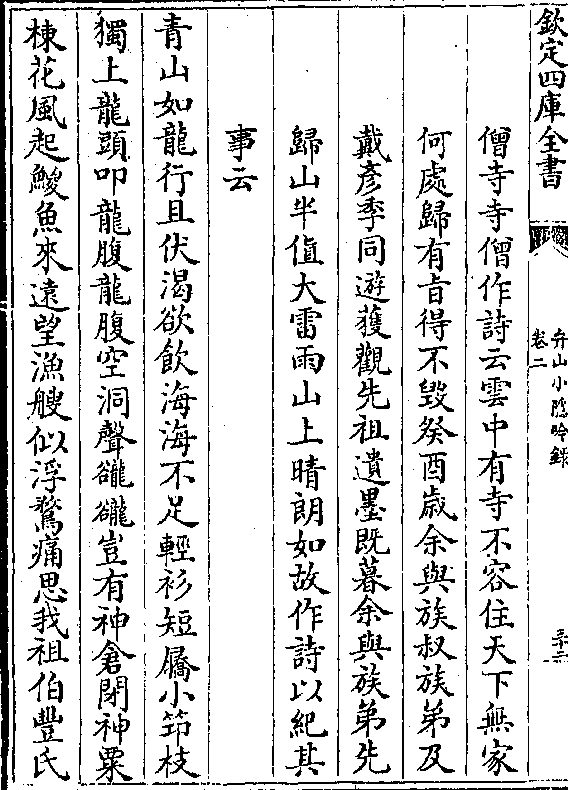 欽定四庫全書
弁山小隱吟録
卷二
僧寺寺僧作詩云雲中有寺不容住天下無家
何處歸有旨得不毀癸酉歳余與族叔族弟及
戴彦季同遊獲觀先祖遺墨既暮余與族弟先
歸山半值大雷雨山上晴朗如故作詩以紀其
事云
青山如龍行且伏渴欲飲海海不足輕衫短屩小笻枝
獨上龍頭叩龍腹龍腹空洞聲豅豅豈有神倉閉神粟
棟花風起鮻魚來遠望漁艘似浮鶩痛思我祖伯豐氏